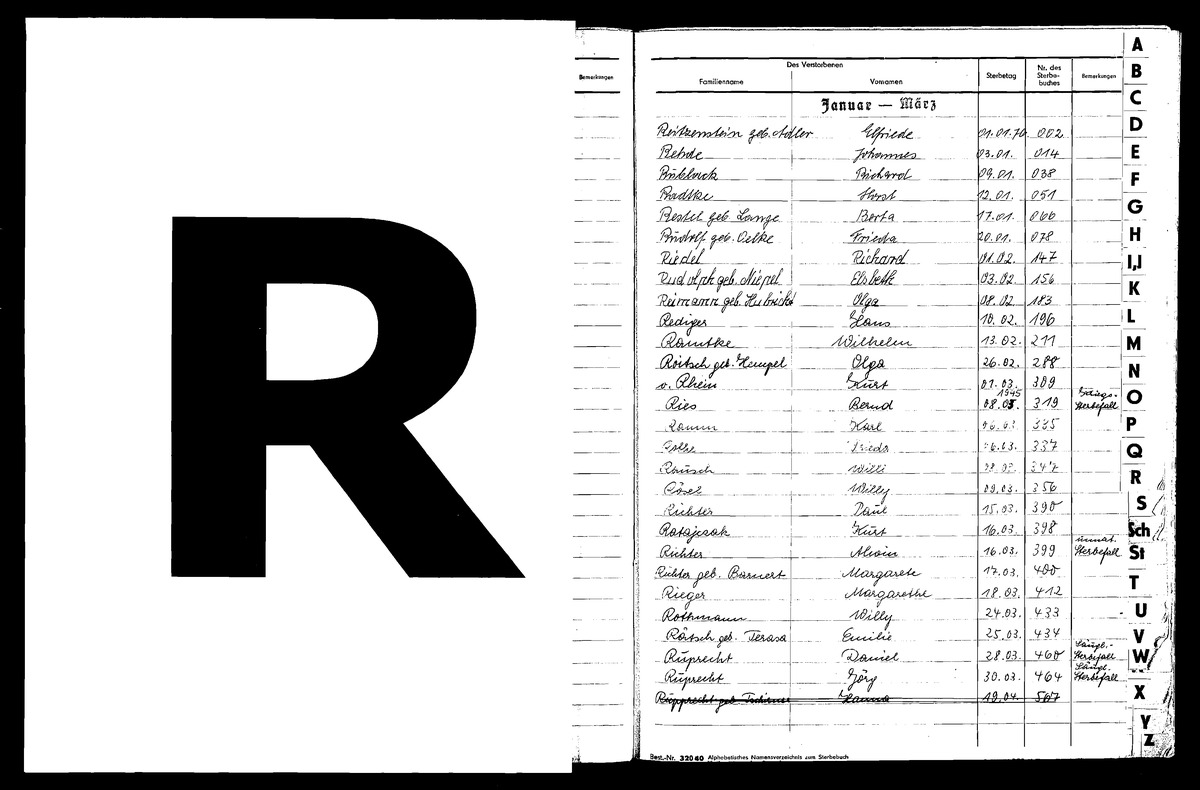 R
Bemerkungen
Des Verstorbenen
Familienname Vornamen Sterbetag Nr. des Sterbe-buches Bemerkungen
Januar — März
Reitzenstein geb. Adler Elfriede 01.01.76 002
Rehde Johannes 03.01. 014
Richard 09.01. 038
Radtke Horst 12.01. 051
Restel geb. Lange Berta 17.01. 066
Rudolf geb. Oelke Frieda 20.01. 078
Riedel Richard 01.02. 147
Rudolph geb. Niepel Elsbeth 03.02 156
Reimann geb. Hubricht Olga 08.02. 183
Rediger Hans 10.02. 196
Ramtke Wilhelm 13.02. 211
Roitsch geb. Hempel Olga 26.02. 288
v. Rhein Kurt 01.03. 309
1945
Ries Bernd 08.03. 319 Sterbefall
Ramm Karl 335
337
Rausch Willi 347
Rösel Willy 09.03. 356
Richter Paul 15.03. 390
Ratajczak Kurt 16.03. 398
Richter Alwin 16.03. 399 unnat. Sterbefall
Richter geb. Barnert Margarete 17.03. 400
Rieger Margarethe 18.03. 412
Rothmann Willy 24.03. 433
Rätsch geb. Terasa Emilie 25.03. 434
Ruprecht Daniel 28.03. 460 Säugl.-Sterbefall
Ruprecht Jörg 30.03. 464 Säugl.-Sterbefall
Rupprecht geb. Tschirner Hanna 19.04. 567
Best.-Nr. 32040 Alphabetisches Namensverzeichnis zum Sterbebuch
A
B
C
D
E
F
G
H
I,J
K
L
M
N
O
P
Q
R
S
Sch
St
T
U
V
W
X
Y
Z